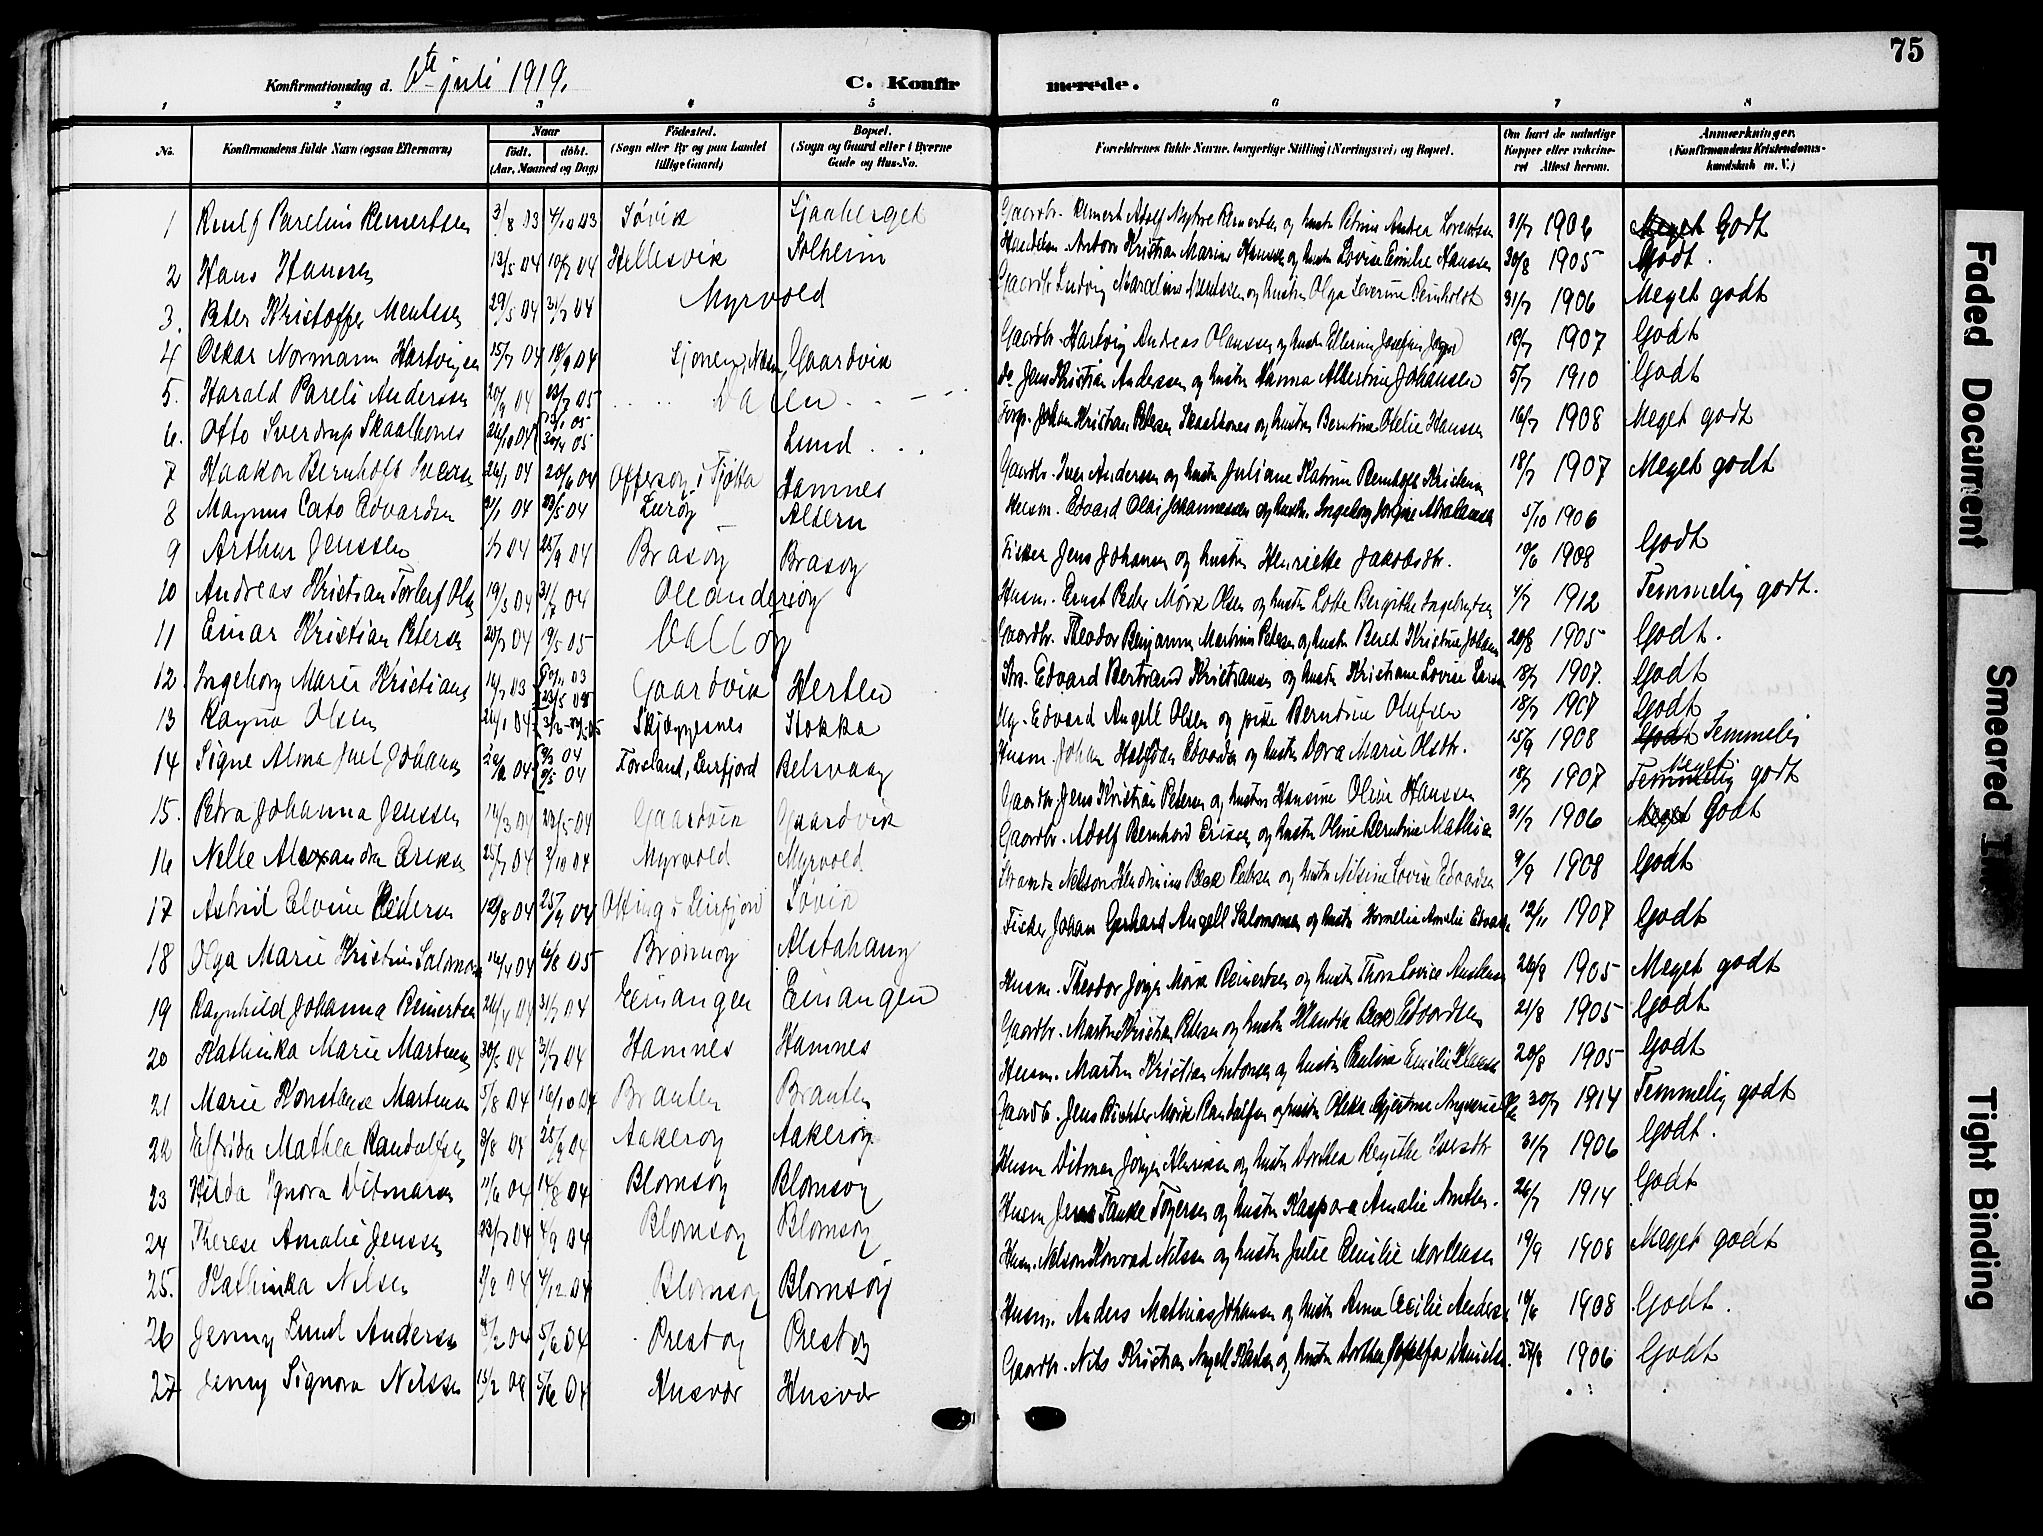 75
Konfirmationsdag d. 6te juli 1919.
C. Konfirmerede.
1 2 3 4 5 6 7 8
No. Konfirmandens fulde Navn (ogsaa Efternavn) Naar födt. döbt. (Aar, Maaned og Dag) Födested. (Sogn eller By og paa Landet tillige Gaard) Bopæl. (Sogn og Gaard eller i Byerne Gade og Hus-No. Forældrenes fulde Navne, borgerlige Stilling (Næringsvei) og Bopæl. Om havt de naturlige Kopper eller vakcineret Attest herom. Anmærkninger. (Konfirmandens Kristendomskundskab m. V.)
1 Parelius Reinertsen 3/8 03 4/10 03 Søvik Gaardbr. Reinert Adolf Reinertsen og hustru Petrine Andrea Lorentsen 31/7 1906 Meget Godt
2 Hans Hansen 13/5 04 10/7 04 Hellesvik Solheim Anton Kristian Marius Hanssen og hustru Lovise Emilie Hanssen 30/8 1905 Godt.
3. Peter Kristoffer Mentsen 29/5 04 31/7 04 Myrvold Gaardbr. Ludvig Marcelius Mentsen og hustru Olga Severine Reinholdt 31/7 1906 Meget godt
4 Oskar Normann Hartvigsen 15/7 04 18/9 04 Gaardvik Gaardbr. Hartvig Andreas Olaussen og hustru Josefine 18/7 1907 Godt
5. Harald Pareli Andersen 20/9 04 23/7 05 Dalen do Jens Kristian Andersen og hustru Hanna Albertine Johansen 5/7 1910 Godt
6. Otto Sverdrup Skaalbones 26/10 04 Lund Johan Kristian Petersen Skaalbones og hustru Berntine Otelie Hanssen 16/7 1908 Meget godt
7 Haakon Bernhoft Iversen 26/1 04 20/6 04 Offersøy i Tjøtta Hamnes Gaardbr. Iver Andersen og hustru Juliane Katrine Bernhoft Kristensen 18/7 1907 Meget godt
8 Magnus Cato Edvardsen 31/1 04 23/5 04 Lurøy Altern Husm. Edvard Olai Johannessen og hustr. Ingeborg Abelsen 5/10 1906
9 Arthur Jenssen 1/7 04 25/9 04 Brasøy Brasøy Fisker Jens Johansen og hustru Henrikke Jakobsdtr. 10/6 1908 Godt
10 Andreas Kristian Torleif Olsen 19/5 04 31/7 04 Oleandersøy Husm. Ernst Peder Mørk Olsen og hustru Lotte Bergitte Ingebrigtsen 4/7 1912 Temmelig godt.
11 Einar Kristian Petersen 20/7 04 19/5 05 Valløy Gaardbr. Theodor Benjamin Martinus Petersen og hustru Beret Kristine Johansen 20/8 1905 Godt.
12. Ingeborg Marie Kristians 14/7 03 Gaardvik Herten Edvard Bertrand Kristiansen og hustru Kristiane Lovise Larsen 18/7 1907. Godt
13 Ragna Olsen 26/1 04 Skjæggesnes Stokka Edvard Angell Olsen og pike Berntine Olufsen 18/7 1907 Godt
14 Signe Alma Juel Johansen Forsland, Leirfjord Belsvaag Husm. Johan Halfdan Edvardsen og hustru Dora Marie Olsdtr. 15/9 1908 Godt Temmelig
15. Petra Johanna Jenssen 14/3 04 23/5 04 Gaardvik Gaardvik Gaardbr. Jens Kristian Petersen og hustru Hansine Oline Hanssen 18/7 1907 Temmelig Meget godt
16 Nelle Alexandra Eriksen 25/7 04 2/10 04 Myrvold Myrvold Gaardbr. Adolf Bernhard Eriksen og hustru Oline Berntine Mathisen 31/7 1906 Meget Godt
17 Astrid Elvine Pedersen 12/8 04 25/9 04 Olting i Leirfjord Søvik Nelson Hendrinius Beck Pedersen og hustru Nilsine Lovise Edvardsen 9/9 1908 Godt
18 Olga Marie Kristine Salomonsen 16/4 04 6/8 05 Brønnøy Alstahaug Fisker Johan Gerhard Angell Salomonsen og hustru Kornelia Amalie 12/11 1907 Godt
19 Ragnhild Johanna Reinertsen 26/4 04 31/7 04 Leinangen Leinangen Husm. Theodor Jørgen Mørk Reinertsen og hustru Thora Lovise Andersen 26/8 1905 Meget godt
20 Kathinka Marie Martinsen 30/5 04 31/7 04 Hamnes Hamnes Gaardbr. Martin Kristian Petersen og hustru Klaudia Edvardsen 21/8 1905 Godt
21 Marie Konstanse Martinsen 5/8 04 16/10 04 Brauten Brauten Husm. Martin Kristian Antonsen og hustru Paulina Emilie 20/8 1905 Godt
22 Valfrida Mathea Randolfsen 3/8 04 25/9 04 Aakerøy Aakerøy Gaardb. Jens Richter Mørk Randolfsen og hustru 30/7 1914 Temmelig godt
23 Hilda Ignora Ditmarsen 11/6 04 14/8 04 Blomsøy Blomsøy Husm Ditmar Jørgen Henriksen og hustru Dorthea Bergitte Iversdtr 31/7 1906 Godt.
24 Therese Amalie Jenssen 23/7 04 4/9 04 Blomsøy Blomsøy Husm Jens Tanke Togersen og hustru Kaspara Amalie Arntsen. 26/7 1914 Godt
25. Kathinka Nilsen 04 4/12 04 Blomsøy Blomsøy Husm. Nelson Konrad Nilsen og hustru Julie Emilie Mortensen 19/9 1908 Meget godt
26 Jenny Lund Andersen 04 5/6 04 Prestøy Prestøy Husm. Anders Mathias Johansen og hustru Anna Cecilie Andersen 19/6 1908 Godt.
27 Jenny Signora Nilssen 15/2 04 5/6 04 Husvær Husvær Gaardbr. Nils Kristian Angell Karlsen og hustru Dorthea Danielsen. 27/8 1906 Godt
Faded Document
Smeared Ink
Tight Binding